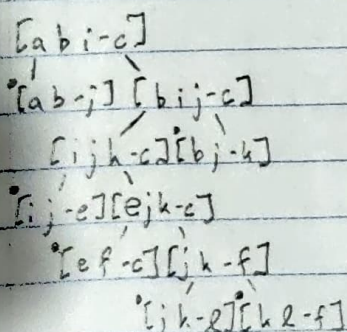 [a b i - c]
[a b - j] [b i j - c]
[i j k - c] [b j - k]
[i j - e] [e j k - c]
[e f - c] [j k - f]
[j k - l] [k l - f]